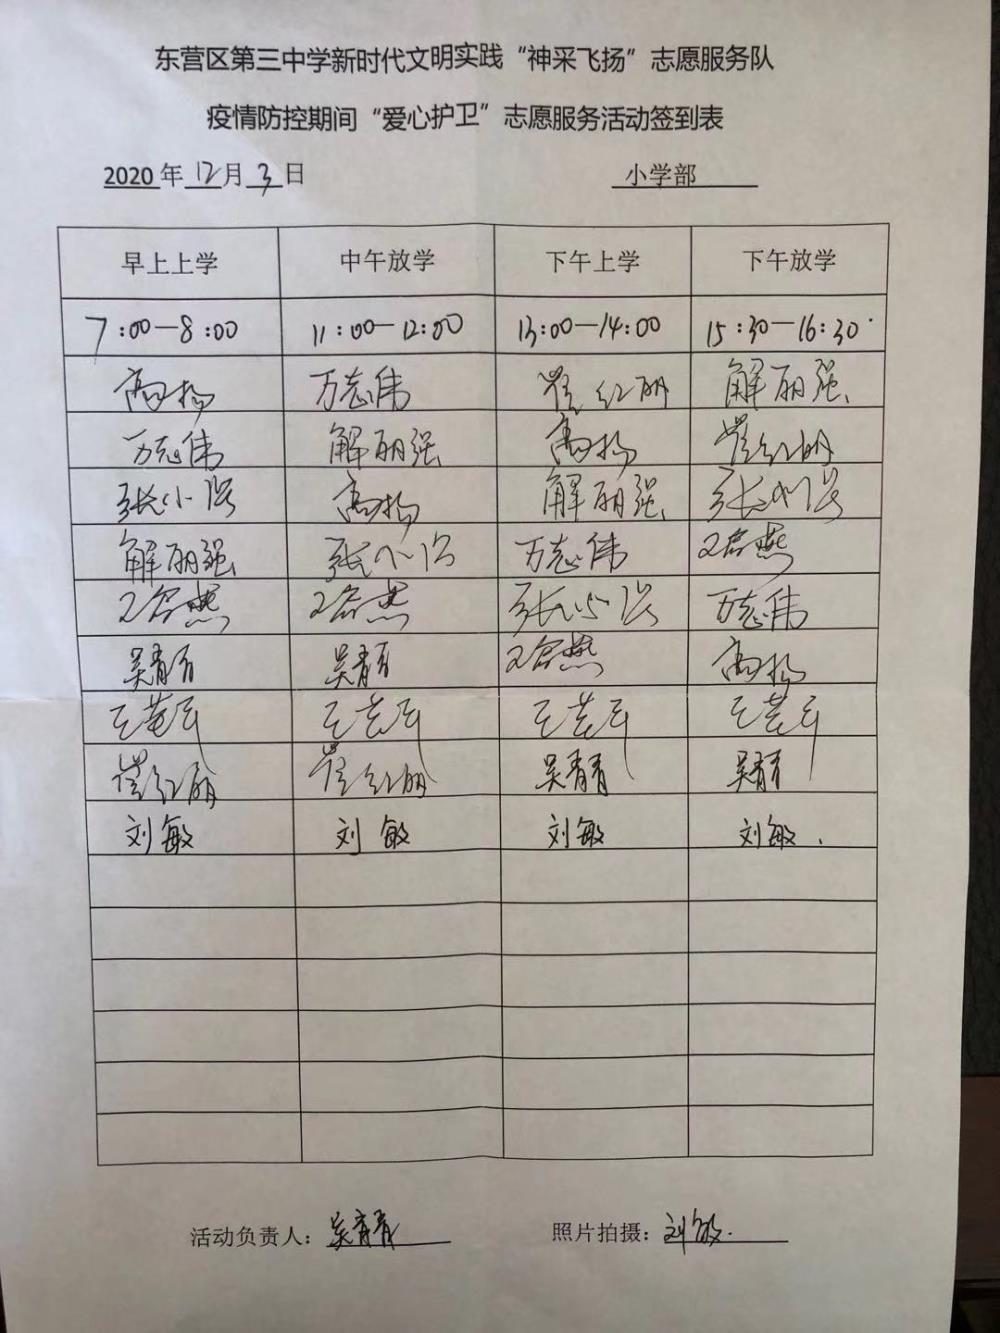 东营区第三中学新时代文明实践“神采飞扬”志愿服务队
疫情防控期间“爱心护卫”志愿服务活动签到表
2020 年 12 月 3 日 小学部
早上上学 中午放学 下午上学 下午放学
7:00—8:00 11:00—12:00 13:00—14:00 15:30—16:30
高扬 万志伟 崔红丽 解丽强
万志伟 解丽强 高扬 崔红丽
张小 高扬 解丽强 张小
解丽强 张小 万志伟 燕
燕 燕 张小 万志伟
吴青青 吴青青 燕 高扬
王芸 王芸 王芸 王芸
崔红丽 崔红丽 吴青青 吴青青
刘敏 刘敏 刘敏 刘敏
活动负责人：吴青青 照片拍摄：刘敏